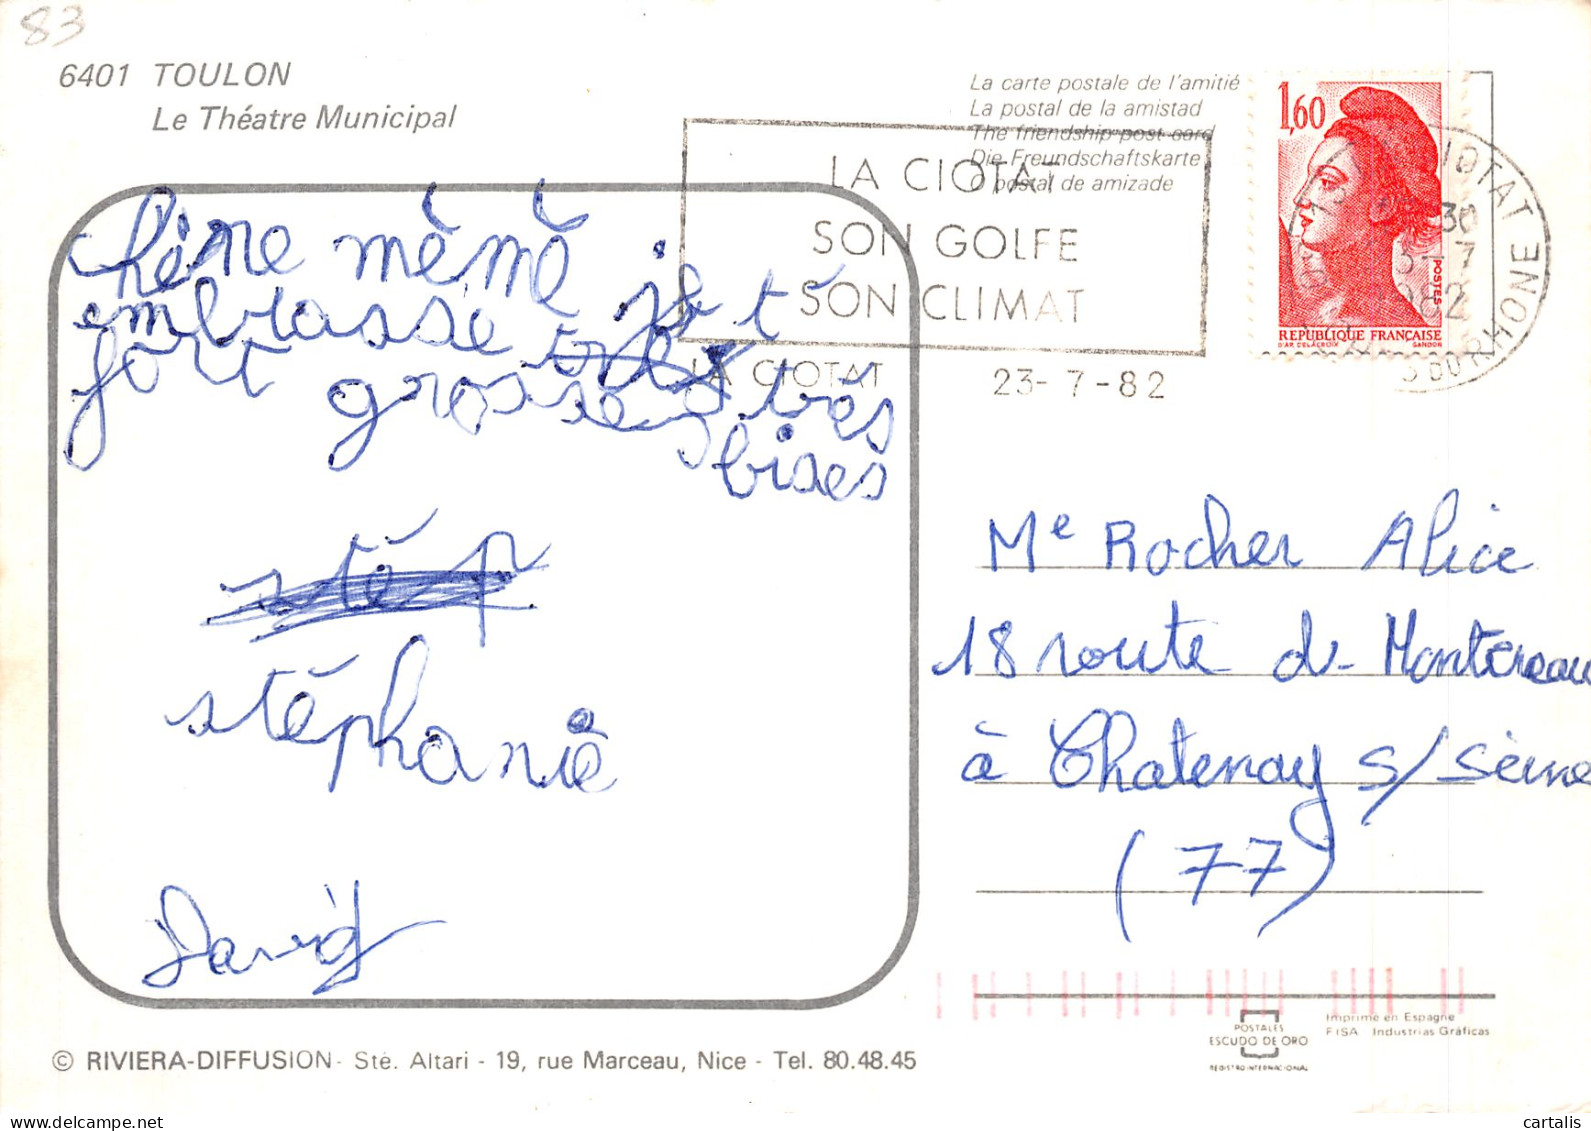 83
6401 TOULON
Le Théatre Municipal
La carte postale de l'amitié
La postal de la amistad
The friendship post card
Die Freundschaftskarte
O postal de amizade
LA CIOTAT
SON GOLFE
SON CLIMAT
LA CIOTAT
23-7-82
1,60
POSTES
REPUBLIQUE FRANÇAISE
D'AP. DELACROIX GANDON
chère mémé je t
embrasse très
fort grosse très
bises
stép
stéphanie
David
Me Rocher Alice
18 route de Montereau
à Chatenay s/ Seine
(77)
© RIVIERA-DIFFUSION - Sté. Altari - 19, rue Marceau, Nice - Tel. 80.48.45
POSTALES
ESCUDO DE ORO
REGISTRO INTERNACIONAL
Imprimé en Espagne
FISA Industrias Gráficas